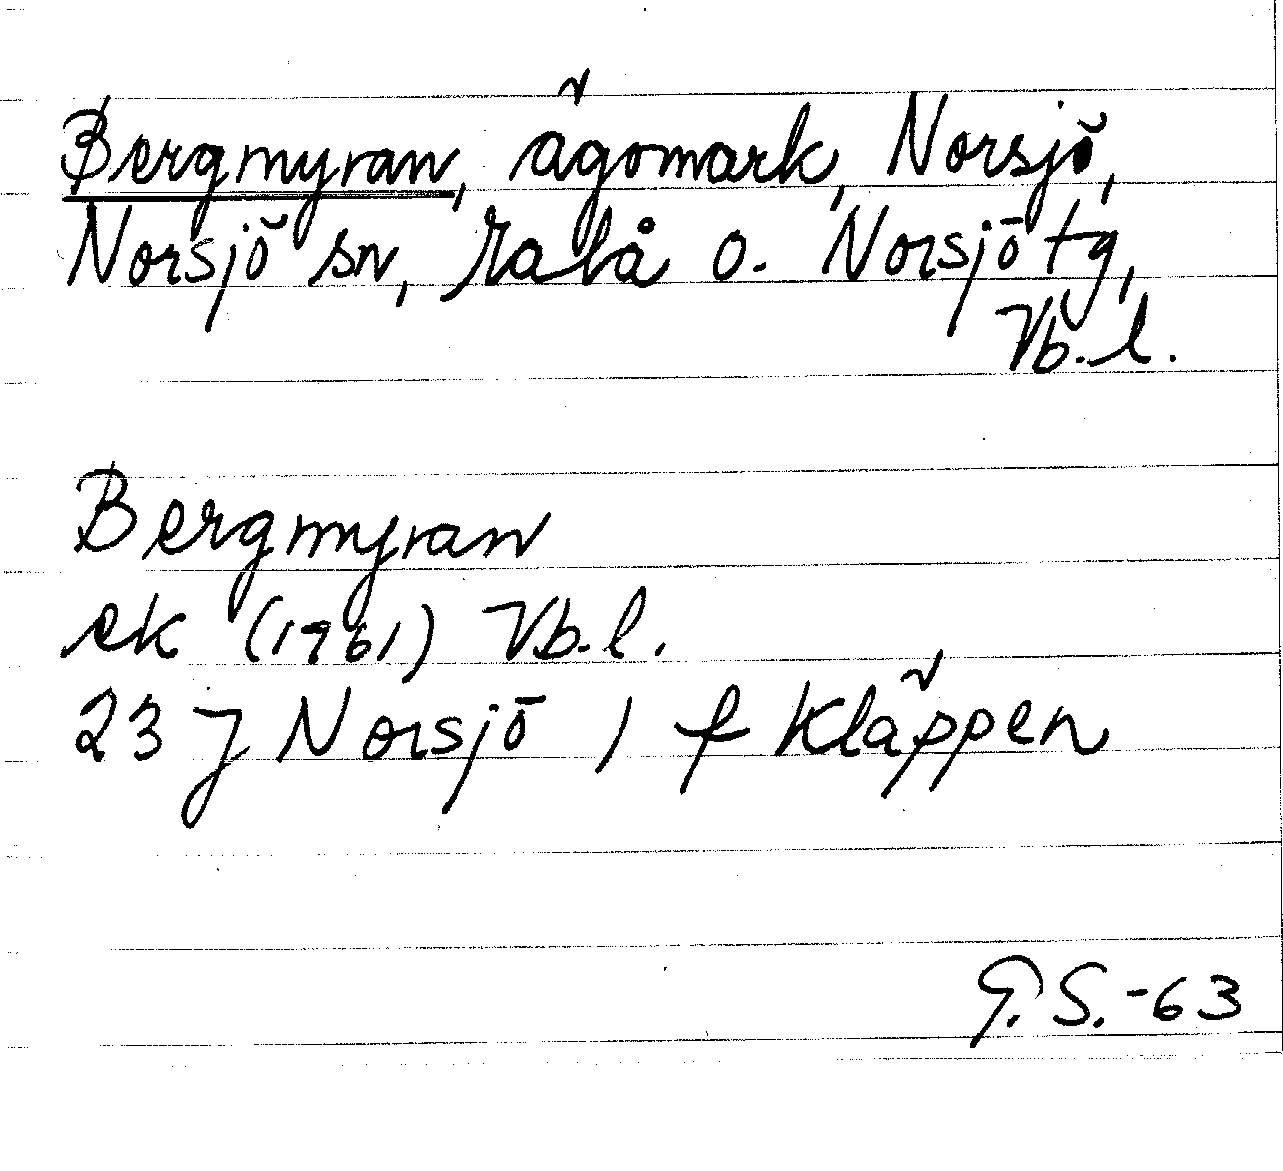 Bergmyran, ägomark, Norsjö,
Norsjö sn, Malå o. Norsjö tg,
Vb.l.
Bergmyran
ek (1961) Vb.l.
23 J Norsjö / f Kläppen
G.S.-63